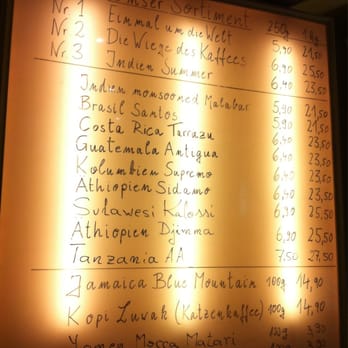 Unser Sortiment 250g 1kg
Nr. 1 Einmal um die Welt 5,90 21,50
Nr. 2 Die Wiege des Kaffees 6,90 25,50
Nr. 3 Indien Summer 6,40 23,50
Indien monsooned Malabar 5,90 21,50
Brasil Santos 5,90 21,50
Costa Rica Tarrazu 6,40 23,50
Guatemala Antigua 6,40 23,50
Kolumbien Supremo 6,40 23,50
Äthiopien Sidamo 6,40 23,50
Sulawesi Kalossi
Äthiopien Djimma 6,90 25,50
Tanzania AA 7,50 27,50
Jamaica Blue Mountain 100g 14,90
Kopi Luwak (Katzenkaffee) 100g 14,90
Yemen Mocca Matari 100g 3,90